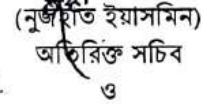 (নুজহাত ইয়াসমিন)
অতিরিক্ত সচিব
ও